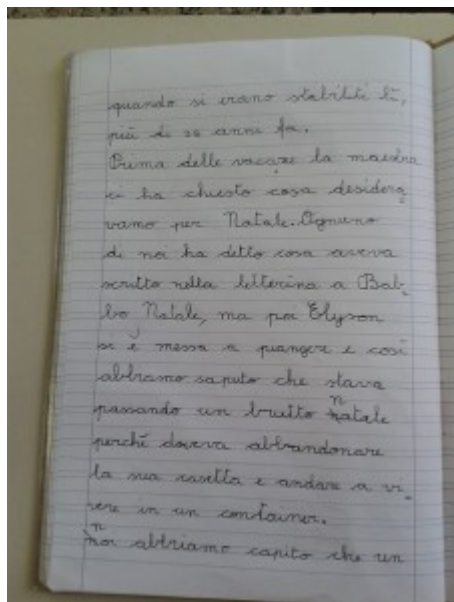 quando si erano stabiliti lì,
più di 20 anni fa.
Prima delle vacaze la maestra
ci ha chiesto cosa desidera
vamo per Natale. Ognuno
di noi ha detto cosa aveva
scritto nella letterina a Bab-
bo Natale, ma poi Elyson
si è messa a piangere e così
abbiamo saputo che stava
passando un brutto natale
perchè doveva abbandonare
la sua casetta e andare a vi-
vere in un container.
noi abbiamo capito che un